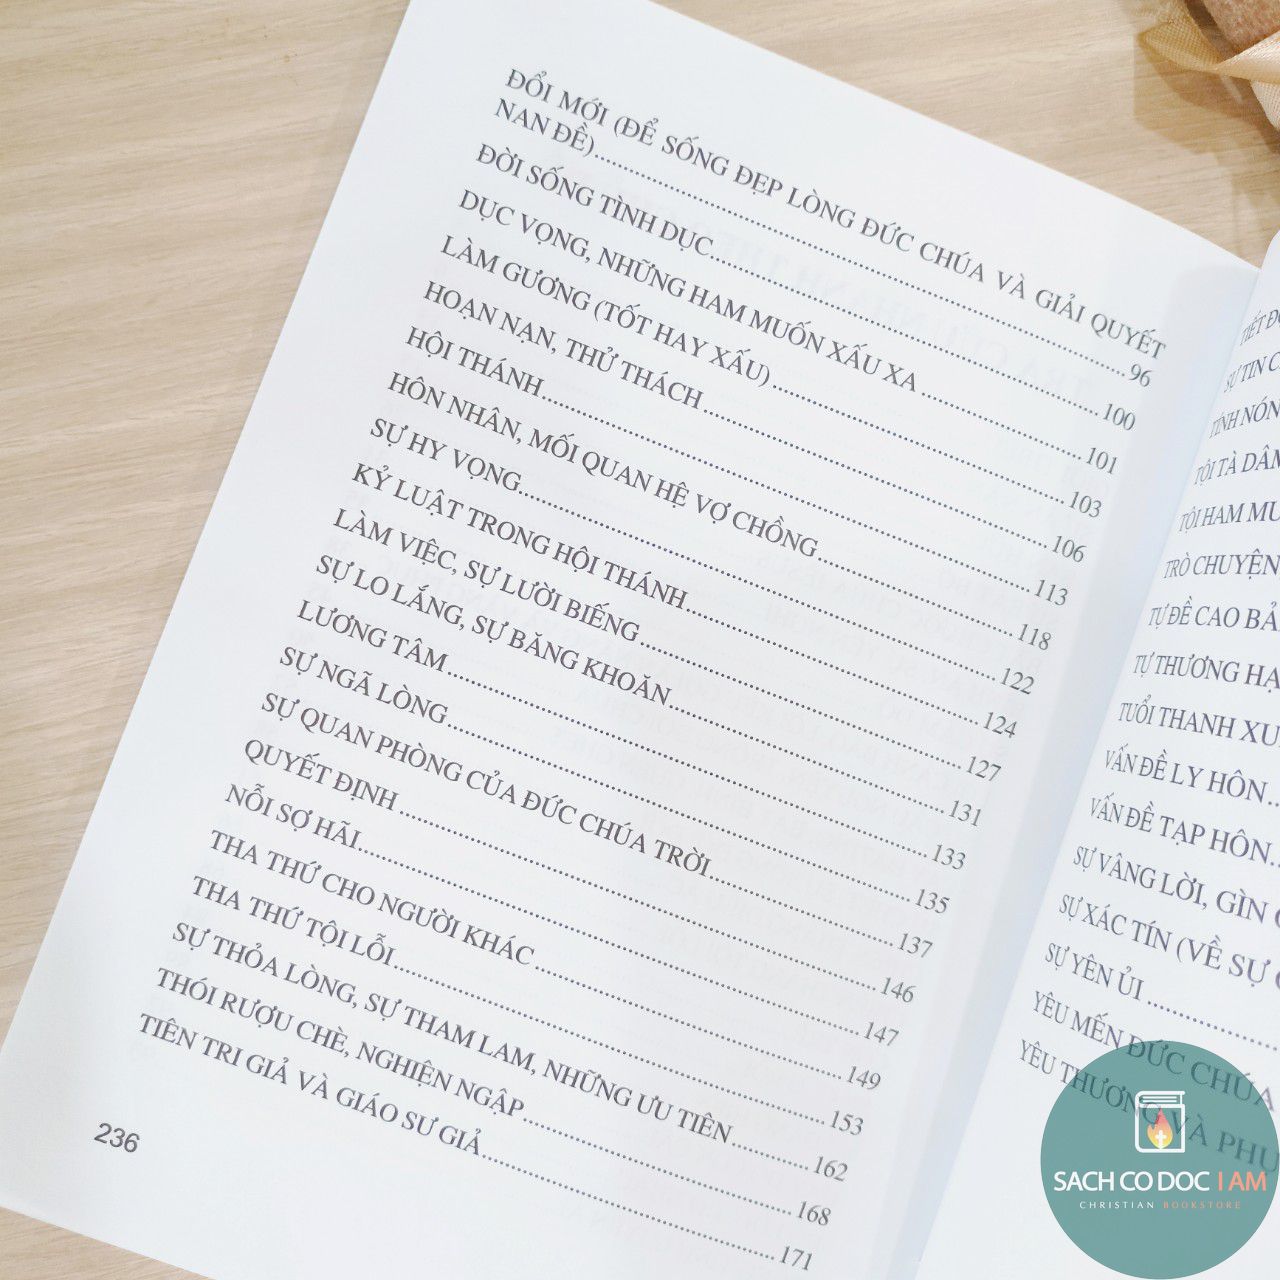 ĐỔI MỚI (ĐỂ SỐNG ĐẸP LÒNG ĐỨC CHÚA VÀ GIẢI QUYẾT
NAN ĐỀ)..........96
ĐỜI SỐNG TÌNH DỤC..........100
DỤC VỌNG, NHỮNG HAM MUỐN XẤU XA..........101
LÀM GƯƠNG (TỐT HAY XẤU)..........103
HOẠN NẠN, THỬ THÁCH..........106
HỘI THÁNH..........113
HÔN NHÂN, MỐI QUAN HỆ VỢ CHỒNG..........118
SỰ HY VỌNG..........122
KỶ LUẬT TRONG HỘI THÁNH..........124
LÀM VIỆC, SỰ LƯỜI BIẾNG..........127
SỰ LO LẮNG, SỰ BĂNG KHOĂN..........131
LƯƠNG TÂM..........133
SỰ NGÃ LÒNG..........135
SỰ QUAN PHÒNG CỦA ĐỨC CHÚA TRỜI..........137
QUYẾT ĐỊNH..........146
NỖI SỢ HÃI..........147
THA THỨ CHO NGƯỜI KHÁC..........149
THA THỨ TỘI LỖI..........153
SỰ THỎA LÒNG, SỰ THAM LAM, NHỮNG ƯU TIÊN..........162
THÓI RƯỢU CHÈ, NGHIỆN NGẬP..........168
TIÊN TRI GIẢ VÀ GIÁO SƯ GIẢ..........171
236
TIẾT
SỰ TIN
TÍNH NÓN
TỘI TÀ DÂM
TỘI HAM MU
TRÒ CHUYỆN
TỰ ĐỀ CAO BẢ
TỰ THƯƠNG HẠ
TUỔI THANH XU
VẤN ĐỀ LY HÔN..
VẤN ĐỀ TẠP HÔN..
SỰ VÂNG LỜI, GÌN
SỰ XÁC TÍN (VỀ SỰ
SỰ YÊN ỦI..........
YÊU MẾN ĐỨC CHÚA
YÊU THƯƠNG VÀ PHU
SACH CO DOC I AM
CHRISTIAN BOOKSTORE